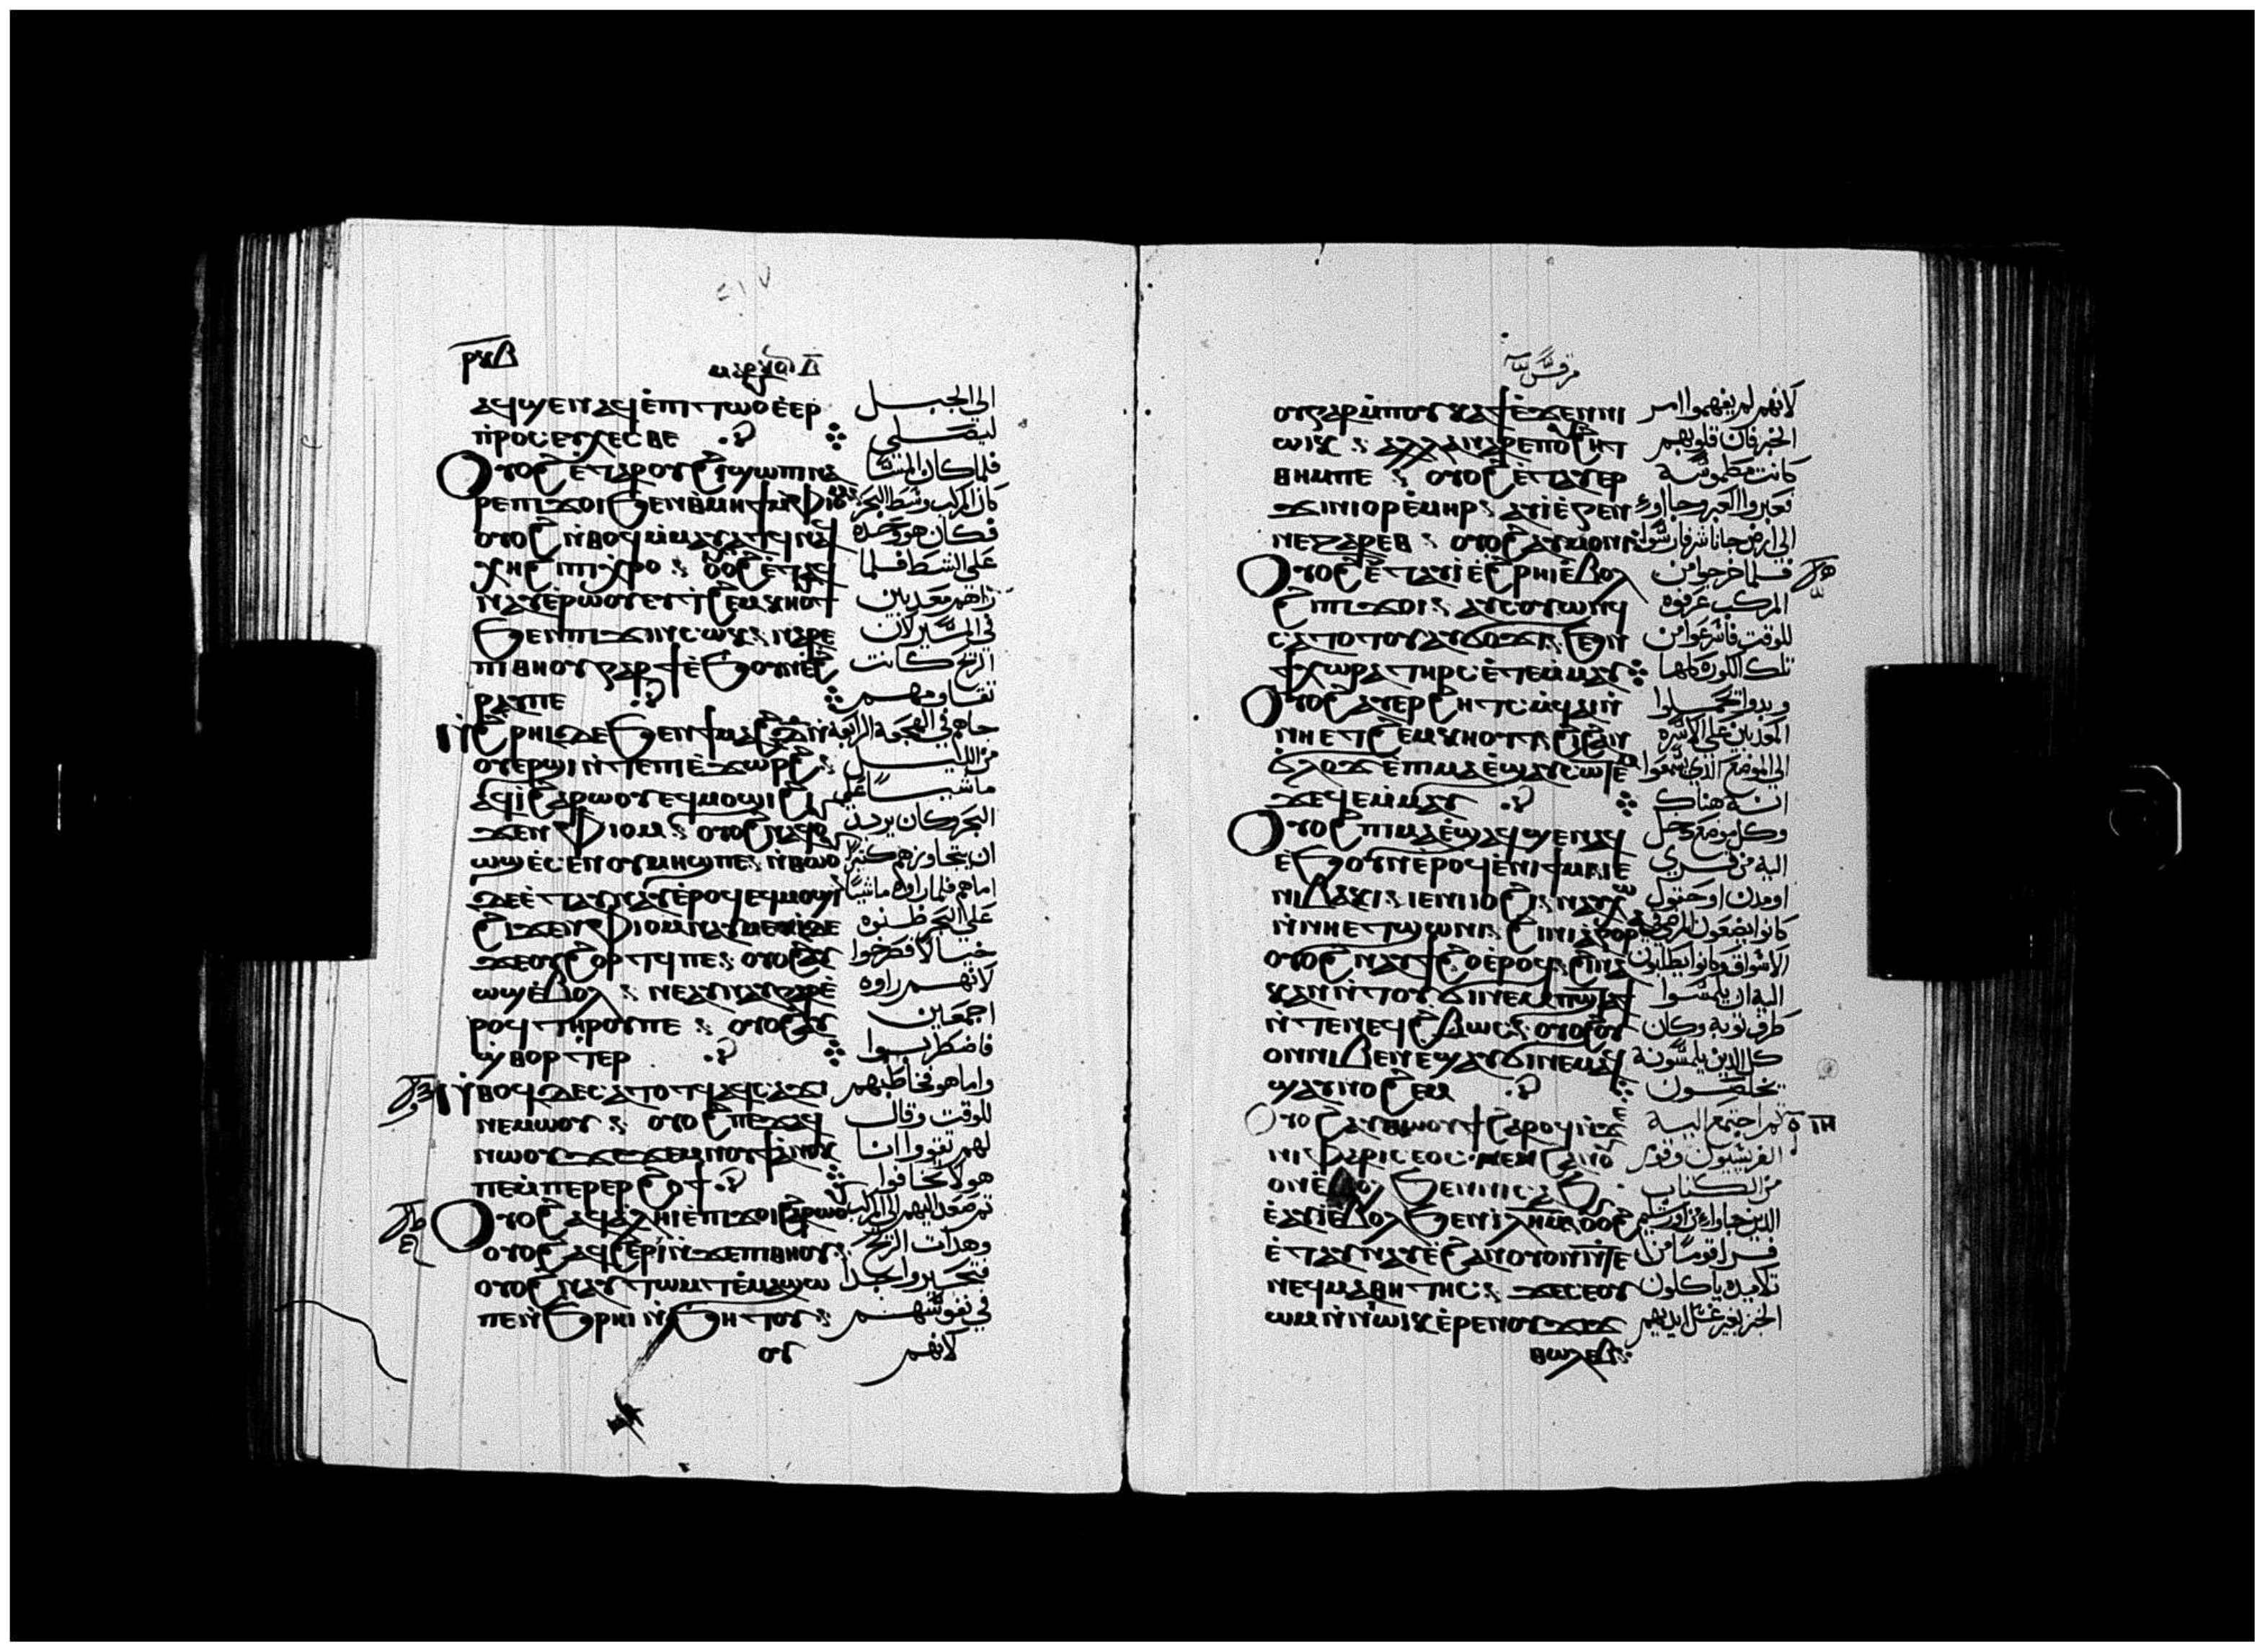 ⲁϥϣⲉⲛⲁϥ ⲉⲡⲓⲧⲱⲟⲩ ⲉⲉⲣ الى الجبل
ⲡⲣⲟⲥⲉⲩⲭⲉⲥⲑⲉ ليصلي
ⲟⲩⲟϩ ⲉⲧⲁⲣⲟⲩϩⲓ ϣⲱⲡⲓ ⲛⲁ فلما كان المسا
ⲣⲉ ⲡⲓϫⲟⲓ ϧⲉⲛ ⲑⲙⲏϯ ⲙⲫⲓⲟⲙ كان المركب وسط البحر
ⲟⲩⲟϩ ⲛⲑⲟϥ ⲙⲙⲁⲩⲁⲧϥ ⲛⲁϥ فكان هو وحده
ⲭⲏ ϩⲓ ⲡⲓⲭⲣⲟ ⲟⲩⲟϩ ⲉⲧⲁϥ على الشط فلما
ⲛⲁⲩ ⲉⲣⲱⲟⲩ ⲉⲩⲧϩⲉⲙⲕⲏⲟⲩⲧ راهم معذبين
ϧⲉⲛ ⲡⲓϫⲓⲛⲥⲱⲕ ⲛⲁⲣⲉ في السير لان
ⲡⲓⲑⲏⲟⲩ ⲅⲁⲣ ϯ ⲉϧⲟⲩⲛ ⲉϩ الريح كانت
ⲣⲁⲩ ⲡⲉ تقاومهم
ⲛϩⲣⲏⲓ ⲇⲉ ϧⲉⲛ ϯⲙⲁϩⲇ ⲛ جاهم في الهجعة الرابعة
ⲟⲩⲉⲣϣⲓ ⲛⲧⲉ ⲡⲓⲉϫⲱⲣϩ من الليل
ⲁϥⲓ ϩⲁⲣⲱⲟⲩ ⲉϥⲙⲟϣⲓ ϩⲓ ماشيا على
ϫⲉⲛ ⲫⲓⲟⲙ ⲟⲩⲟϩ ⲛⲁϥⲟⲩ البحر وكان يريد
ⲱϣ ⲉⲥⲉⲛⲟⲩ ⲙⲙⲏϣ ⲡⲉ ⲛⲑⲱⲟⲩ ان يتجاوزهم كثير
ⲇⲉ ⲉⲧⲁⲩⲛⲁⲩ ⲉⲣⲟϥ ⲉϥⲙⲟϣⲓ اما هم فلما راوه ماشيا
ϩⲓϫⲉⲛ ⲫⲓⲟⲙ ⲛⲁⲩⲙⲉⲩⲓ ⲡⲉ على البحر ظنوه
ϫⲉ ⲟⲩϩⲟⲣⲧϥ ⲡⲉ ⲟⲩⲟϩ ⲁⲩ خيالا فصرخوا
ⲱϣ ⲉⲃⲟⲗ ⲛⲉⲁⲩⲛⲁⲩ ⲅⲁⲣ ⲉ لانهم راوه
ⲣⲟϥ ⲧⲏⲣⲟⲩ ⲡⲉ ⲟⲩⲟϩ ⲁⲩ اجمعين
ϣⲑⲟⲣⲧⲉⲣ فاضطربوا
ⲛⲑⲟϥ ⲇⲉ ⲥⲁⲧⲟⲧϥ ⲁϥⲥⲁϫⲓ واما هو فخاطبهم
ⲛⲉⲙⲱⲟⲩ ⲟⲩⲟϩ ⲡⲉϫⲁϥ للوقت وقال
ⲛⲱⲟⲩ ϫⲉ ϫⲉⲙⲛⲟⲙϯ ⲁⲛⲟⲕ لهم تقووا انا
ⲡⲉ ⲙⲡⲉⲣⲉⲣϩⲟϯ هو لا تخافوا
ⲟⲩⲟϩ ⲁϥⲁⲗⲏⲓ ⲉⲡⲓϫⲟⲓ ϩⲁⲣⲱⲟⲩ ثم صعد اليهم الى المركب
ⲟⲩⲟϩ ⲁϥϩⲉⲣⲓ ⲛϫⲉ ⲡⲓⲑⲏⲟⲩ وهدات الريح
ⲟⲩⲟϩ ⲛⲁⲩⲧⲱⲙⲧ ⲉⲙⲁϣⲱ فتحيروا جدا
ⲡⲉ ⲛϧⲣⲏⲓ ⲛϧⲏⲧⲟⲩ في نفوسهم
ⲟⲩ لانهم
مرقس
ⲟⲩ ⲅⲁⲣ ⲙⲡⲟⲩⲕⲁϯ ⲉϫⲉⲛ ⲛⲓ لانهم لم يفهموا امر
ⲱⲓⲕ ⲁⲗⲗⲁ ⲛⲁⲣⲉ ⲡⲟⲩϩⲏⲧ الخبز فان قلوبهم
ⲑⲏⲙ ⲡⲉ ⲟⲩⲟϩ ⲉⲧⲁⲩⲉⲣ كانت مطموسة
ϫⲓⲛⲓⲟⲣ ⲉⲙⲏⲣ ⲁⲩⲓ ⲉⲅⲉⲛ فعبروا العبر وجاوا
ⲛⲉⲍⲁⲣⲉⲑ ⲟⲩⲟϩ ⲁⲩⲙⲟⲛⲓ الى ارض جاناشر فارسوا
ⲟⲩⲟϩ ⲉⲧⲁⲩⲓ ⲉϩⲣⲏⲓ ⲉⲃⲟⲗ فلما خرجوا من
ϩⲓ ⲡⲓϫⲟⲓ ⲁⲩⲥⲟⲩⲱⲛϥ المركب عرفوه
ⲥⲁⲧⲟⲧⲟⲩ ⲁⲩϭⲟϫⲓ ϧⲉⲛ للوقت فاسرعوا من
ϯⲭⲱⲣⲁ ⲧⲏⲣⲥ ⲉⲧⲉⲙⲙⲁⲩ تلك الكورة كلها
ⲟⲩⲟϩ ⲁⲩⲉⲣϩⲏⲧⲥ ⲛϥⲁⲓ ⲛ وبدوا تحملوا
ⲛⲏⲉⲧϩⲉⲙⲕⲏⲟⲩⲧ ϩⲓϫⲉⲛ المعذبين على الاسرة
ϭⲗⲟϫ ⲉⲡⲓⲙⲁ ⲉϣⲁⲩⲥⲱⲧⲉⲙ الى الموضع الذي سمعوا
ϫⲉ ϥⲉⲙⲙⲁⲩ انه هناك
ⲟⲩⲟϩ ⲡⲓⲙⲁ ⲉϣⲁϥϣⲉⲛⲁϥ وكل موضع دخل
ⲉϧⲟⲩⲛ ⲉⲣⲟϥ ⲉⲛⲓϯⲙⲓ ⲓⲉ اليه من قرى
ⲛⲓⲃⲁⲕⲓ ⲓⲉ ⲛⲓⲓⲟϩⲓ ⲛⲁⲩⲭⲱ او مدن او حقول
ⲛⲛⲏⲉⲧϣⲱⲛⲓ ϩⲓ ⲛⲓⲁⲅⲟⲣⲁ كانوا يضعون المرضى في
ⲟⲩⲟϩ ⲛⲁⲩϯϩⲟ ⲉⲣⲟϥ ϩⲓⲛⲁ الاسواق وكانوا يطلبون
ⲕⲁⲛ ⲛⲧⲟⲩϭⲓ ⲛⲉⲙ ⲡϣⲧⲁϯ اليه ان يلمسوا
ⲛⲧⲉ ⲛⲉϥϩⲃⲱⲥ ⲟⲩⲟϩ ⲟⲩ طرف ثوبه وكان
ⲟⲛ ⲛⲓⲃⲉⲛ ⲉϣⲁⲩϭⲓ ⲛⲉⲙⲁϥ كل الذين يلمسونه
ϣⲁⲩⲛⲟϩⲉⲙ يخلصون
ⲟⲩⲟϩ ⲁⲩⲑⲱⲟⲩϯ ϩⲁⲣⲟϥ ⲛϫⲉ ثم اجتمع اليه
ⲛⲓⲫⲁⲣⲓⲥⲉⲟⲥ ⲛⲉⲙ ϩⲁⲛⲟⲩ الفريسيون وقوم
ⲟⲛ ⲉⲃⲟⲗ ϧⲉⲛ ⲛⲓⲥⲁϧ من الكتاب
ⲉⲁⲩⲓ ⲉⲃⲟⲗ ϧⲉⲛ ⲓⲗⲏⲙ ⲟⲩⲟϩ الذين جاوا من اورشليم
ⲉⲧⲁⲩⲛⲁⲩ ⲉϩⲁⲛⲟⲩⲟⲛ ⲛⲧⲉ فراوا قوما من
ⲛⲉϥⲙⲁⲑⲏⲧⲏⲥ ϫⲉ ⲥⲉⲟⲩ تلاميذه ياكلون
ⲱⲙ ⲛⲛⲓⲱⲓⲕ ⲉⲣⲉ ⲛⲟⲩϫⲓϫ الخبز بغير غسل ايديهم
ⲑⲱⲗⲉⲃ